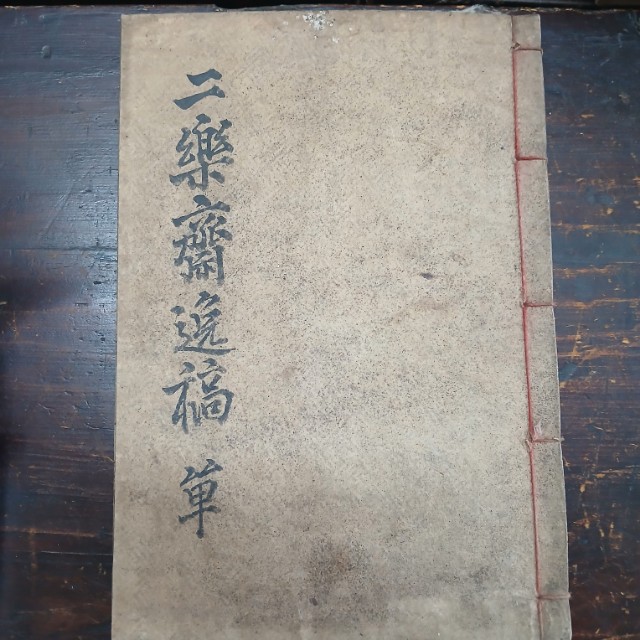 二樂齋逸稿 單